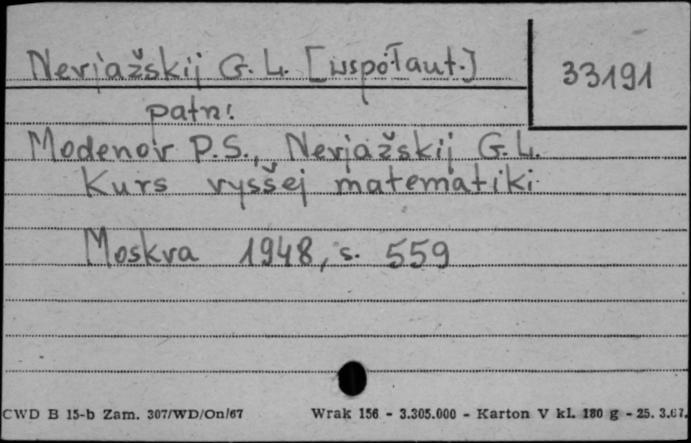 Nevjažskij G. L. [współaut.]
33191
patrz:
Modenov P.S., Nevjažskij G. L.
Kurs vysšej matematiki
Moskva 1948, s. 559
CWD B 15-b Zam. 307/WD/On/67 Wrak 156 - 3.305.000 - Karton V kl. 180 g - 25. 3.67.